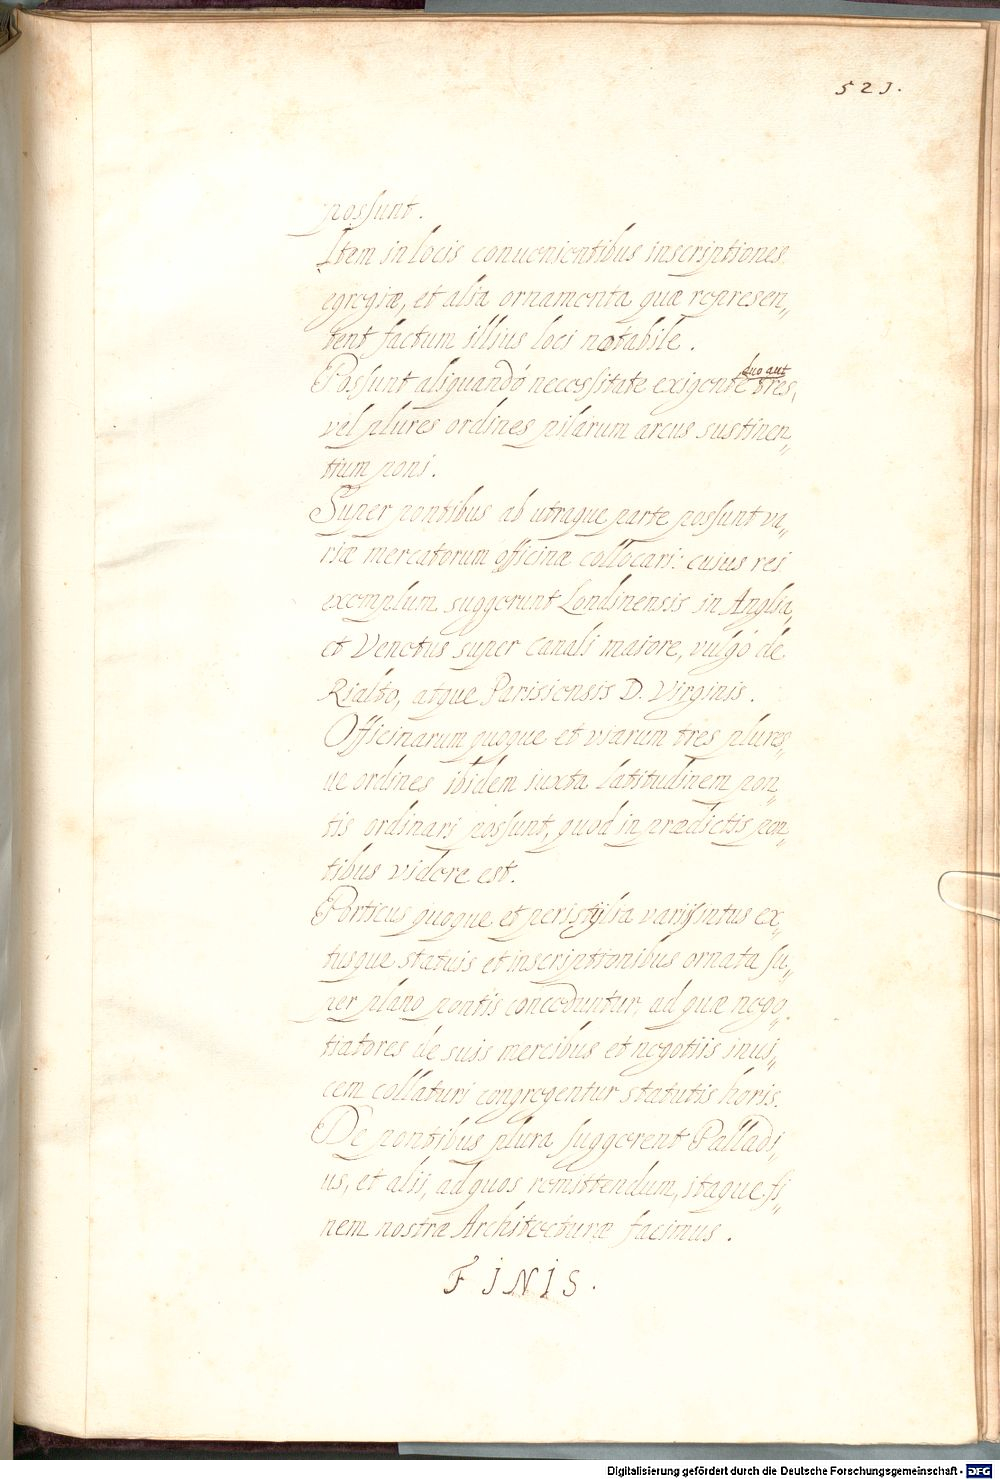 521.
possunt.
Item in locis conuenientibus inscriptiones
egregiæ, et alia ornamenta quæ represen„
tent factum illius loci notabile.
duo aut
Possunt aliquandò necessitate exigente tres,
vel plures ordines pilarum arcus sustinen„
tium poni.
Super pontibus ab utraque parte possunt va„
riæ mercatorum officinæ collocari: cuius rei
exemplum suggerunt Londinensis in Anglia,
et Venetus super Canali maiore, vulgò de
Rialto, atque Parisiensis D. Virginis.
Officinarum quoque et viarum tres plures„
ue ordines ibidem iuxta latitudinem pon„
tis ordinari possunt, quod in prædictis pon„
tibus videre est.
Porticus quoque et peristylia varijs intus ex„
tusque statuis et inscriptionibus ornata su„
per plano pontis conceduntur, ad quæ nego„
tiatores de suis mercibus et negotiis inui„
cem collaturi congregentur statutis horis.
De pontibus plura suggerent Palladi„
us, et alii, ad quos remittendum, itaque fi„
nem nostræ Architecturæ facimus.
FINIS.
Digitalisierung gefördert durch die Deutsche Forschungsgemeinschaft - DFG